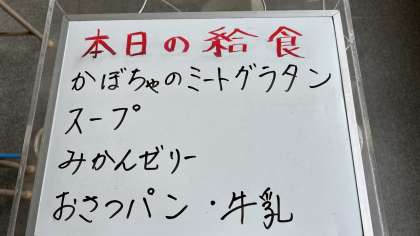 本日の給食
かぼちゃのミートグラタン
スープ
みかんゼリー
おさつパン・牛乳